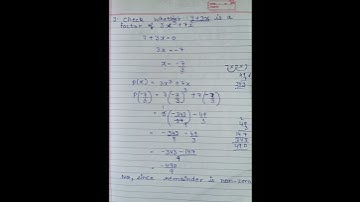 3. Check whether 7+3x is a
factor of 3x³+7x
7+3x=0
3x = -7
x = -7/3
p(x) = 3x³+7x
p(-7/3) = 3(-7/3)³ + 7(-7/3)
= 3(-343/27) - 49/3
= -343/9 - 49/3
= -343-147/9
= -490/9
No, since remainder is non-zero
49
3
147
343
490